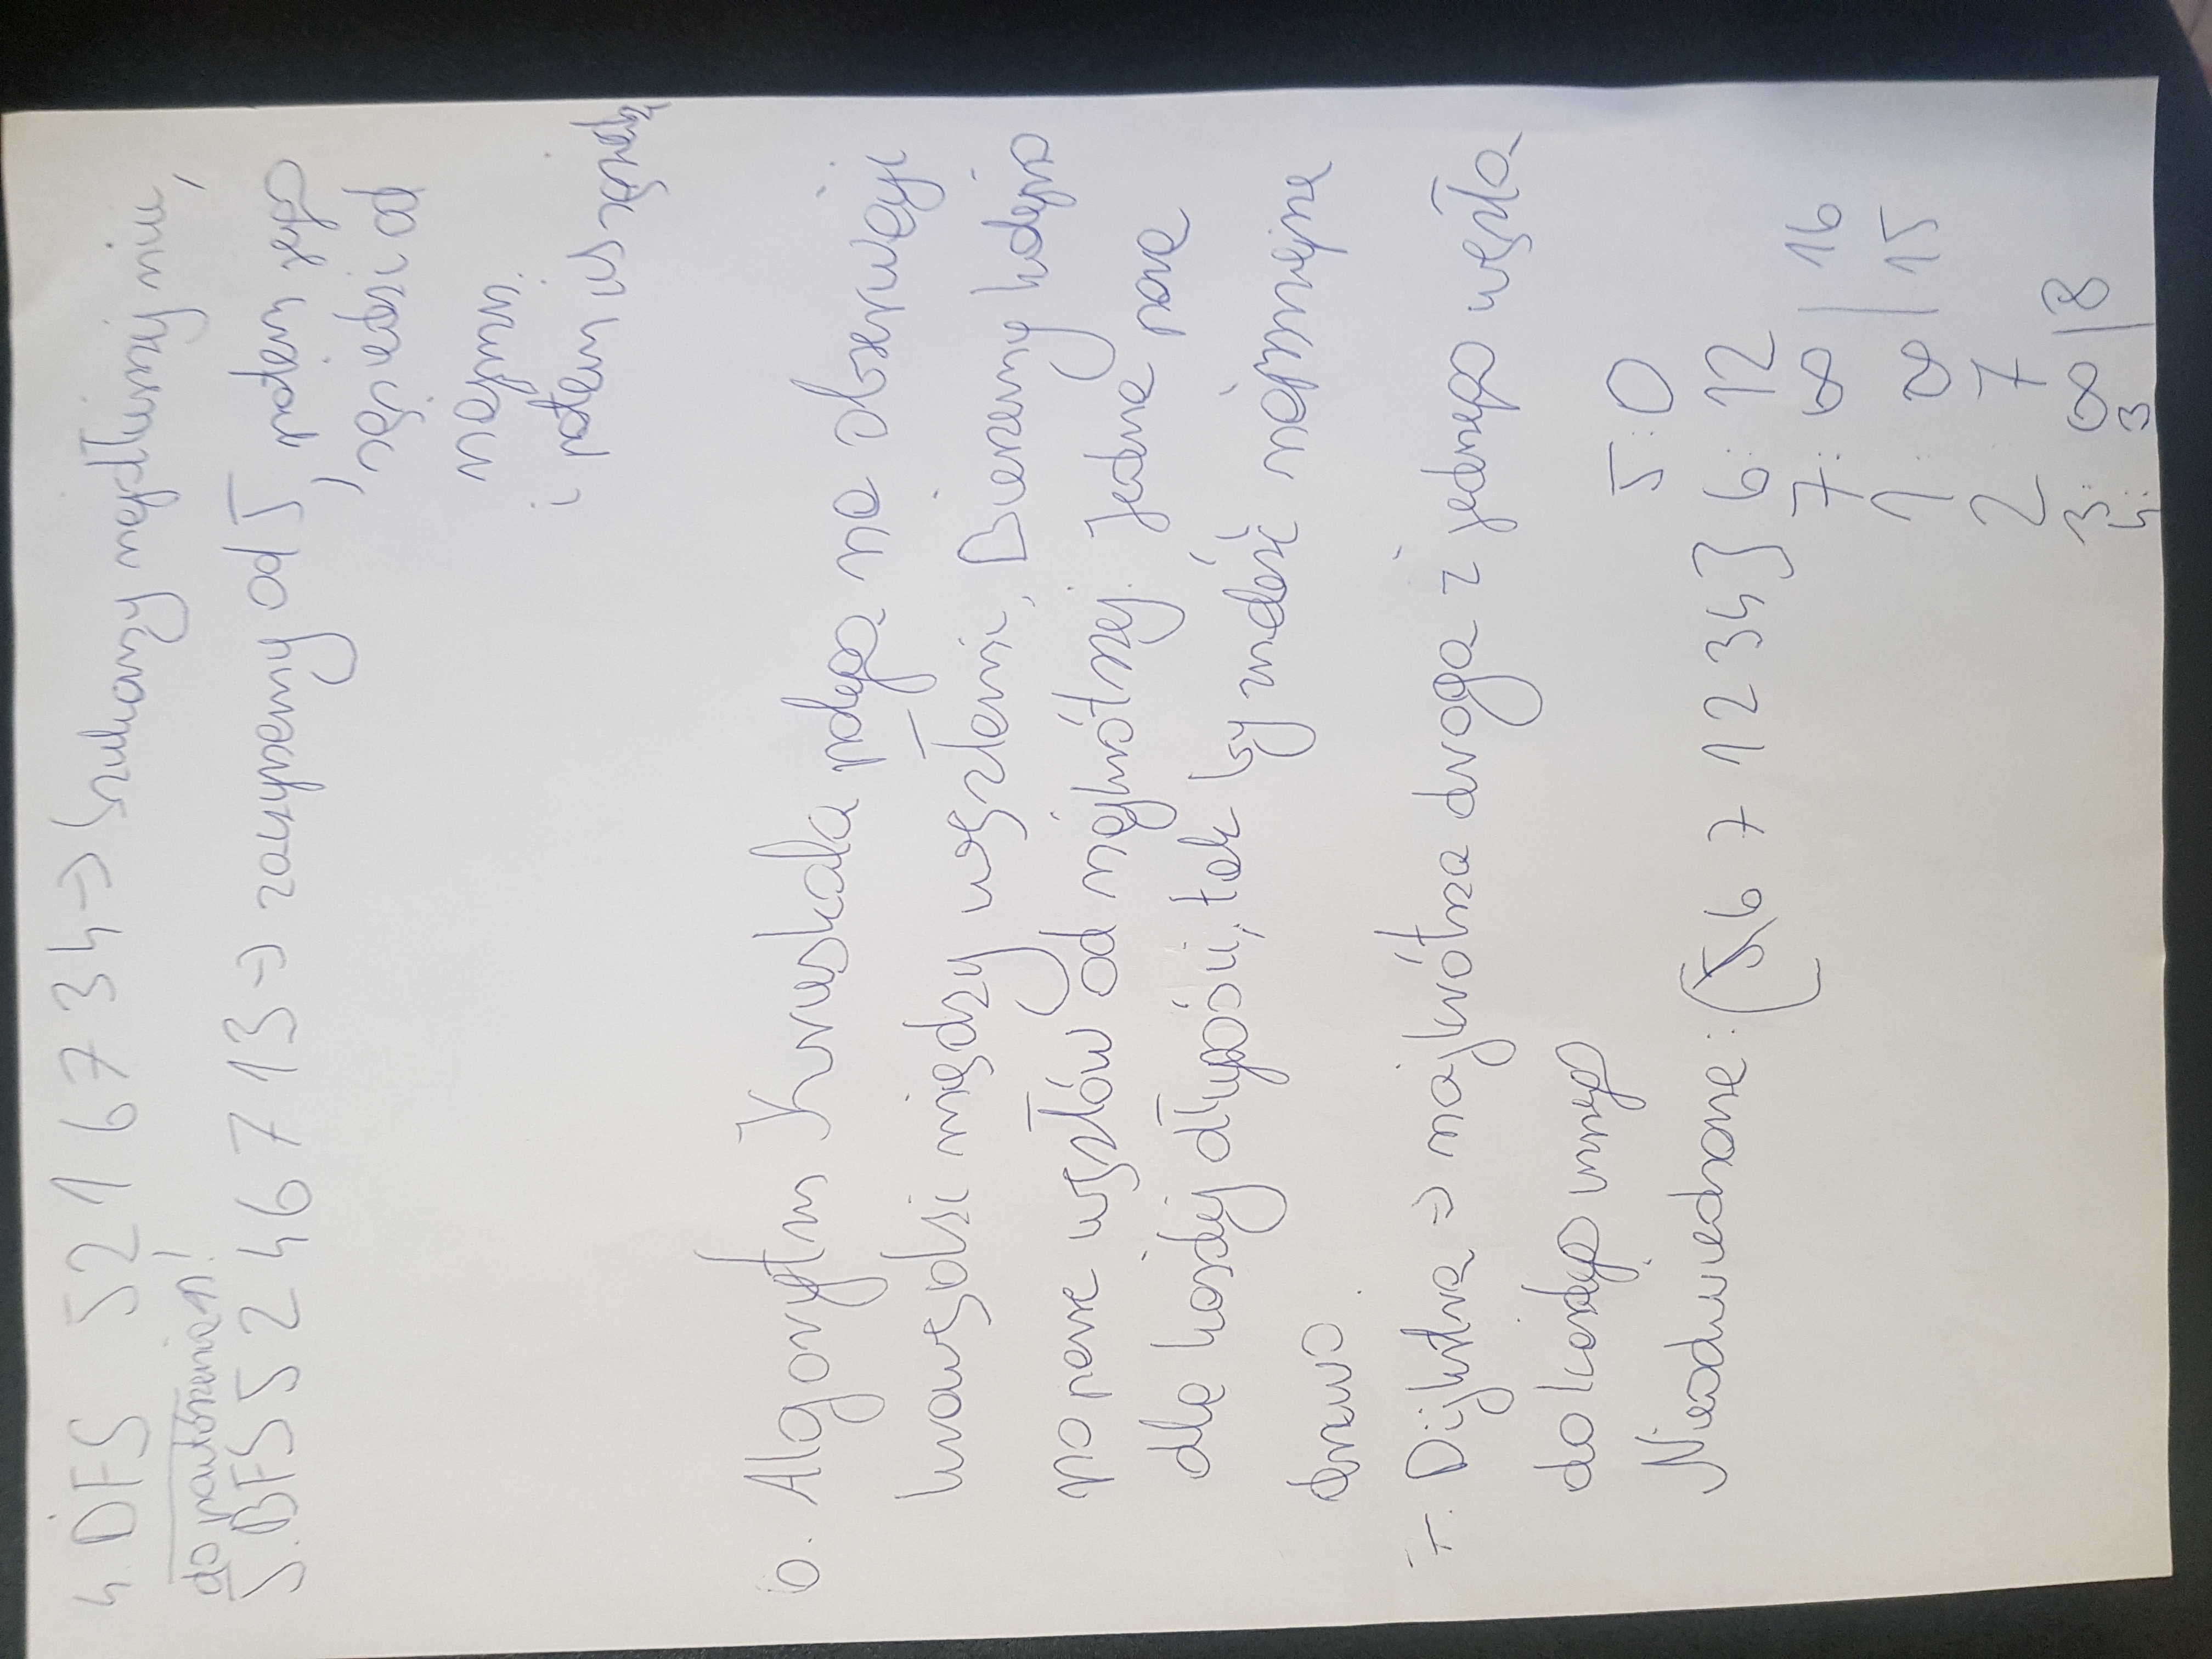 4. DFS 5 2 1 6 7 3 4 => Szukamy najdłuższej nici,
do powtórzenia!
5. BFS 5 2 4 6 7 1 3 => zaczynamy od 5, potem jego
sąsiedzi od
najmn.
i potem ich sąsiedzi
6. Algorytm Kruskala polega na obserwacji
krawędzi między węzłami. Bierzemy kolejno
po parze węzłów od najkrótszej. Jedna para
dla każdej długości, tak by znaleźć najmniejsze
drzewo.
7. Dijkstra => najkrótsza droga z jednego węzła
do każdego innego
5: 0
Nieodwiedzone: {5 6 7 1 2 3 4} 6: 12
7: ∞ | 16
1: ∞ | 15
2: 7
3: ∞ | 8
4: 3 |